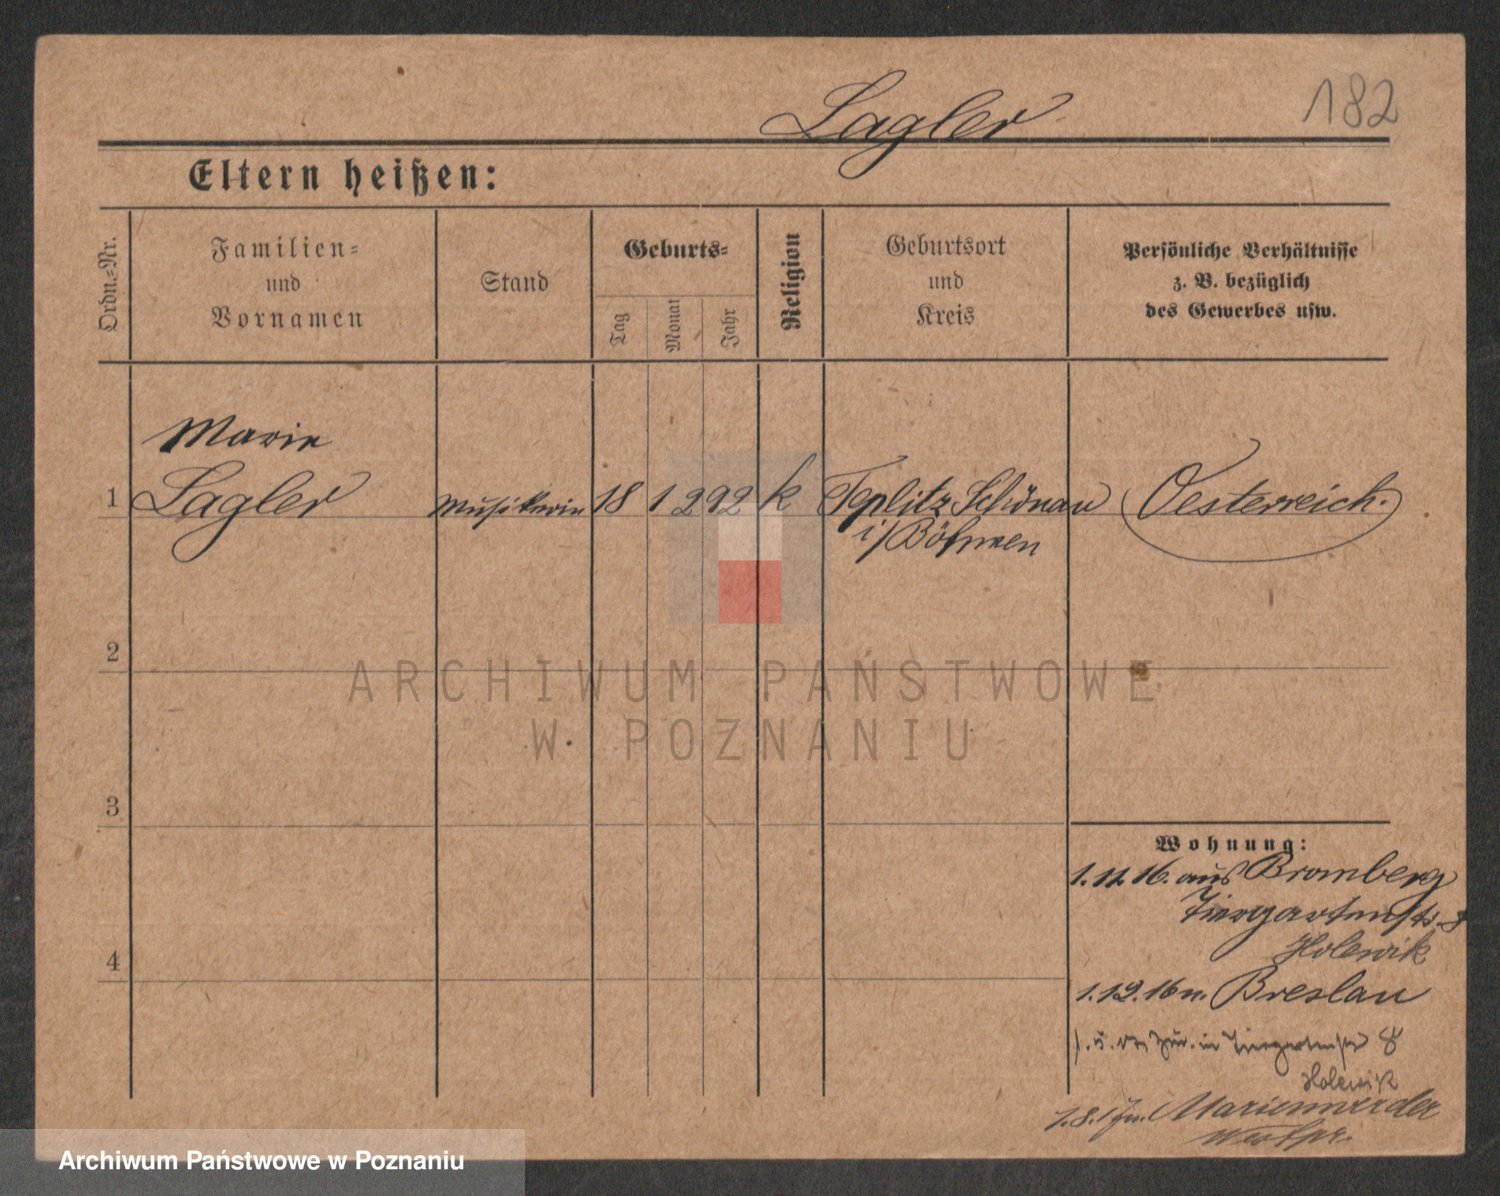 182
Lagler
Eltern heißen:
Ordn.-Nr.
Familien-
und
Vornamen
Stand
Geburts-
Tag
Monat
Jahr
Religion
Geburtsort
und
Kreis
Persönliche Verhältnisse
z. B. bezüglich
des Gewerbes usw.
Marie
1 Lagler Musikerin 18 12 92 k Teplitz Schönau Oesterreich.
i/Böhmen
2
3
4
Wohnung:
1.11.16. aus Bromberg
Tiergartenstr. 8
Holewik
1.12.16 n. Breslau
zur. in Tiergartenstr 8
Holewik
n. Marienwerder
Westpr.
ARCHIWUM PAŃSTWOWE
W POZNANIU
Archiwum Państwowe w Poznaniu